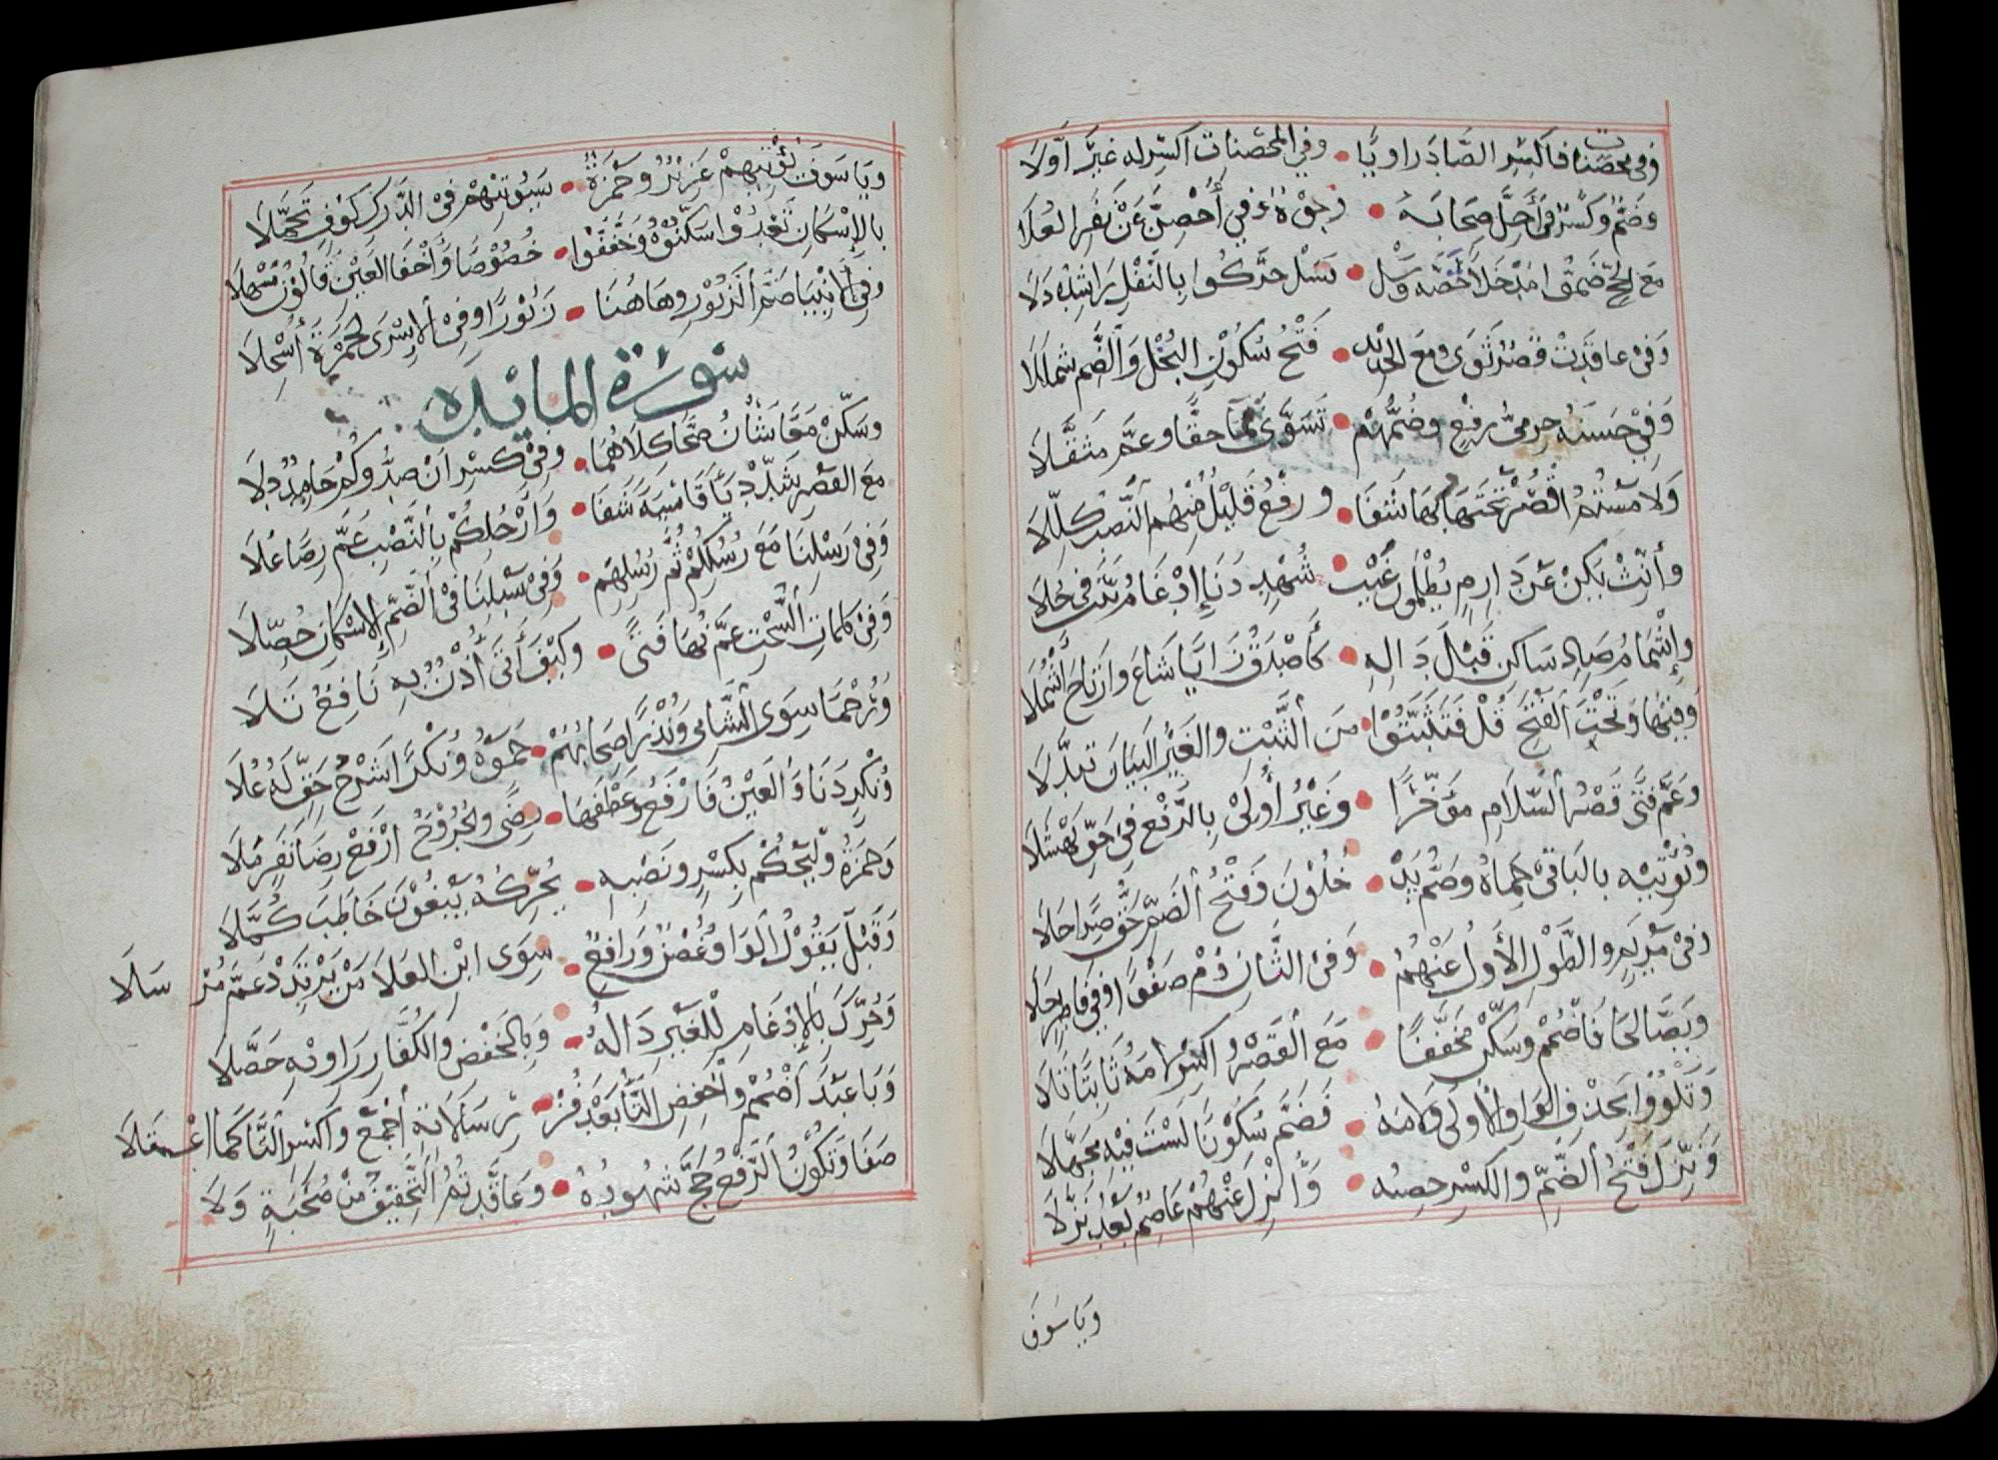 وفي محصنات فاكسر الصاد راويا • وفي المحصنات اكسر له غير أولا
وضم وكسر في أحل صحابه • وجوه وفي أحصن عن نفر العلا
مع الحج ضموا مدخلا خصه وسل • فسل حركوا بالنقل راشده دلا
وفي عاقدت قصر ثوى ومع الحديد • فتح سكون البخل والضم شمللا
وفي حسنه حرمي رفع وضمهم • تسوى نما حقا وعم مثقلا
ولامستم اقصر تحتها وبها شفا • ورفع قليل منهم النصب كللا
وأنث يكن عن دارم يظلمون غيب • شهد دنا إدغام بيت في حلا
وإشمام صاد ساكن قبل داله • كأصدق زايا شاع وارتاح أشملا
وفيها وتحت الفتح قل فتثبتوا • من الثبت والغير البيان تبدلا
وعم فتى قصر السلام مؤخرا • وغير أولى بالرفع في حق نهشلا
ونؤتيه باليا في حماه وضم يد • خلون وفتح الضم حق صرا حلا
وفي مريم والطول الأول عنهم • وفي الثان دم صفوا وفي فاطر حلا
ويصالحا فاضمم وسكن مخففا • مع القصر واكسر لامه ثابتا تلا
وتلووا بحذف الواو الأولى ولامه • فضم سكونا لست فيه مجهلا
ونزل فتح الضم والكسر حصنه • وأنزل عنهم عاصم بعد نزلا
ويا سوف
ويا سوف نؤتيهم عزيز وحمزة • سيؤتيهم في الدرك كوف تحملا
بالإسكان تعدوا سكنوه وخففوا • خصوصا وأخفى العين قالون مسهلا
وفي الأنبيا ضم الزبور وهاهنا • زبورا وفي الإسرى لحمزة أسجلا
سورة المايدة
وسكن معا شنآن صحا كلاهما • وفي كسر ان صدوكم حامد دلا
مع القصر شدد ياء قاسية شفا • وأرجلكم بالنصب عم رضا علا
وفي رسلنا مع رسلكم ثم رسلهم • وفي سبلنا في الضم الإسكان حصلا
وفي كلمات السحت عم نهى فتى • وكيف أتى أذن به نافع تلا
ورحما سوى الشامي ونذرا صحابهم • حموه ونكرا شرع حق له علا
ونكر دنا والعين فارفع وعطفها • رضى والجروح ارفع رضا نفر ملا
وحمزة وليحكم بكسر ونصبه • يحركه يبغون خاطب كملا
وقبل يقول الواو غصن ورافع • سوى ابن العلا من يرتدد عم مرسلا
وحرك بالإدغام للغير داله • وبالخفض والكفار راويه حصلا
وبا عبد اضمم واخفض التا بعد فز • رسالاته أجمع واكسر التا كما اعتلا
صفا وتكون الرفع حج شهوده • وعاقدتم التخفيف من صحبة ولا